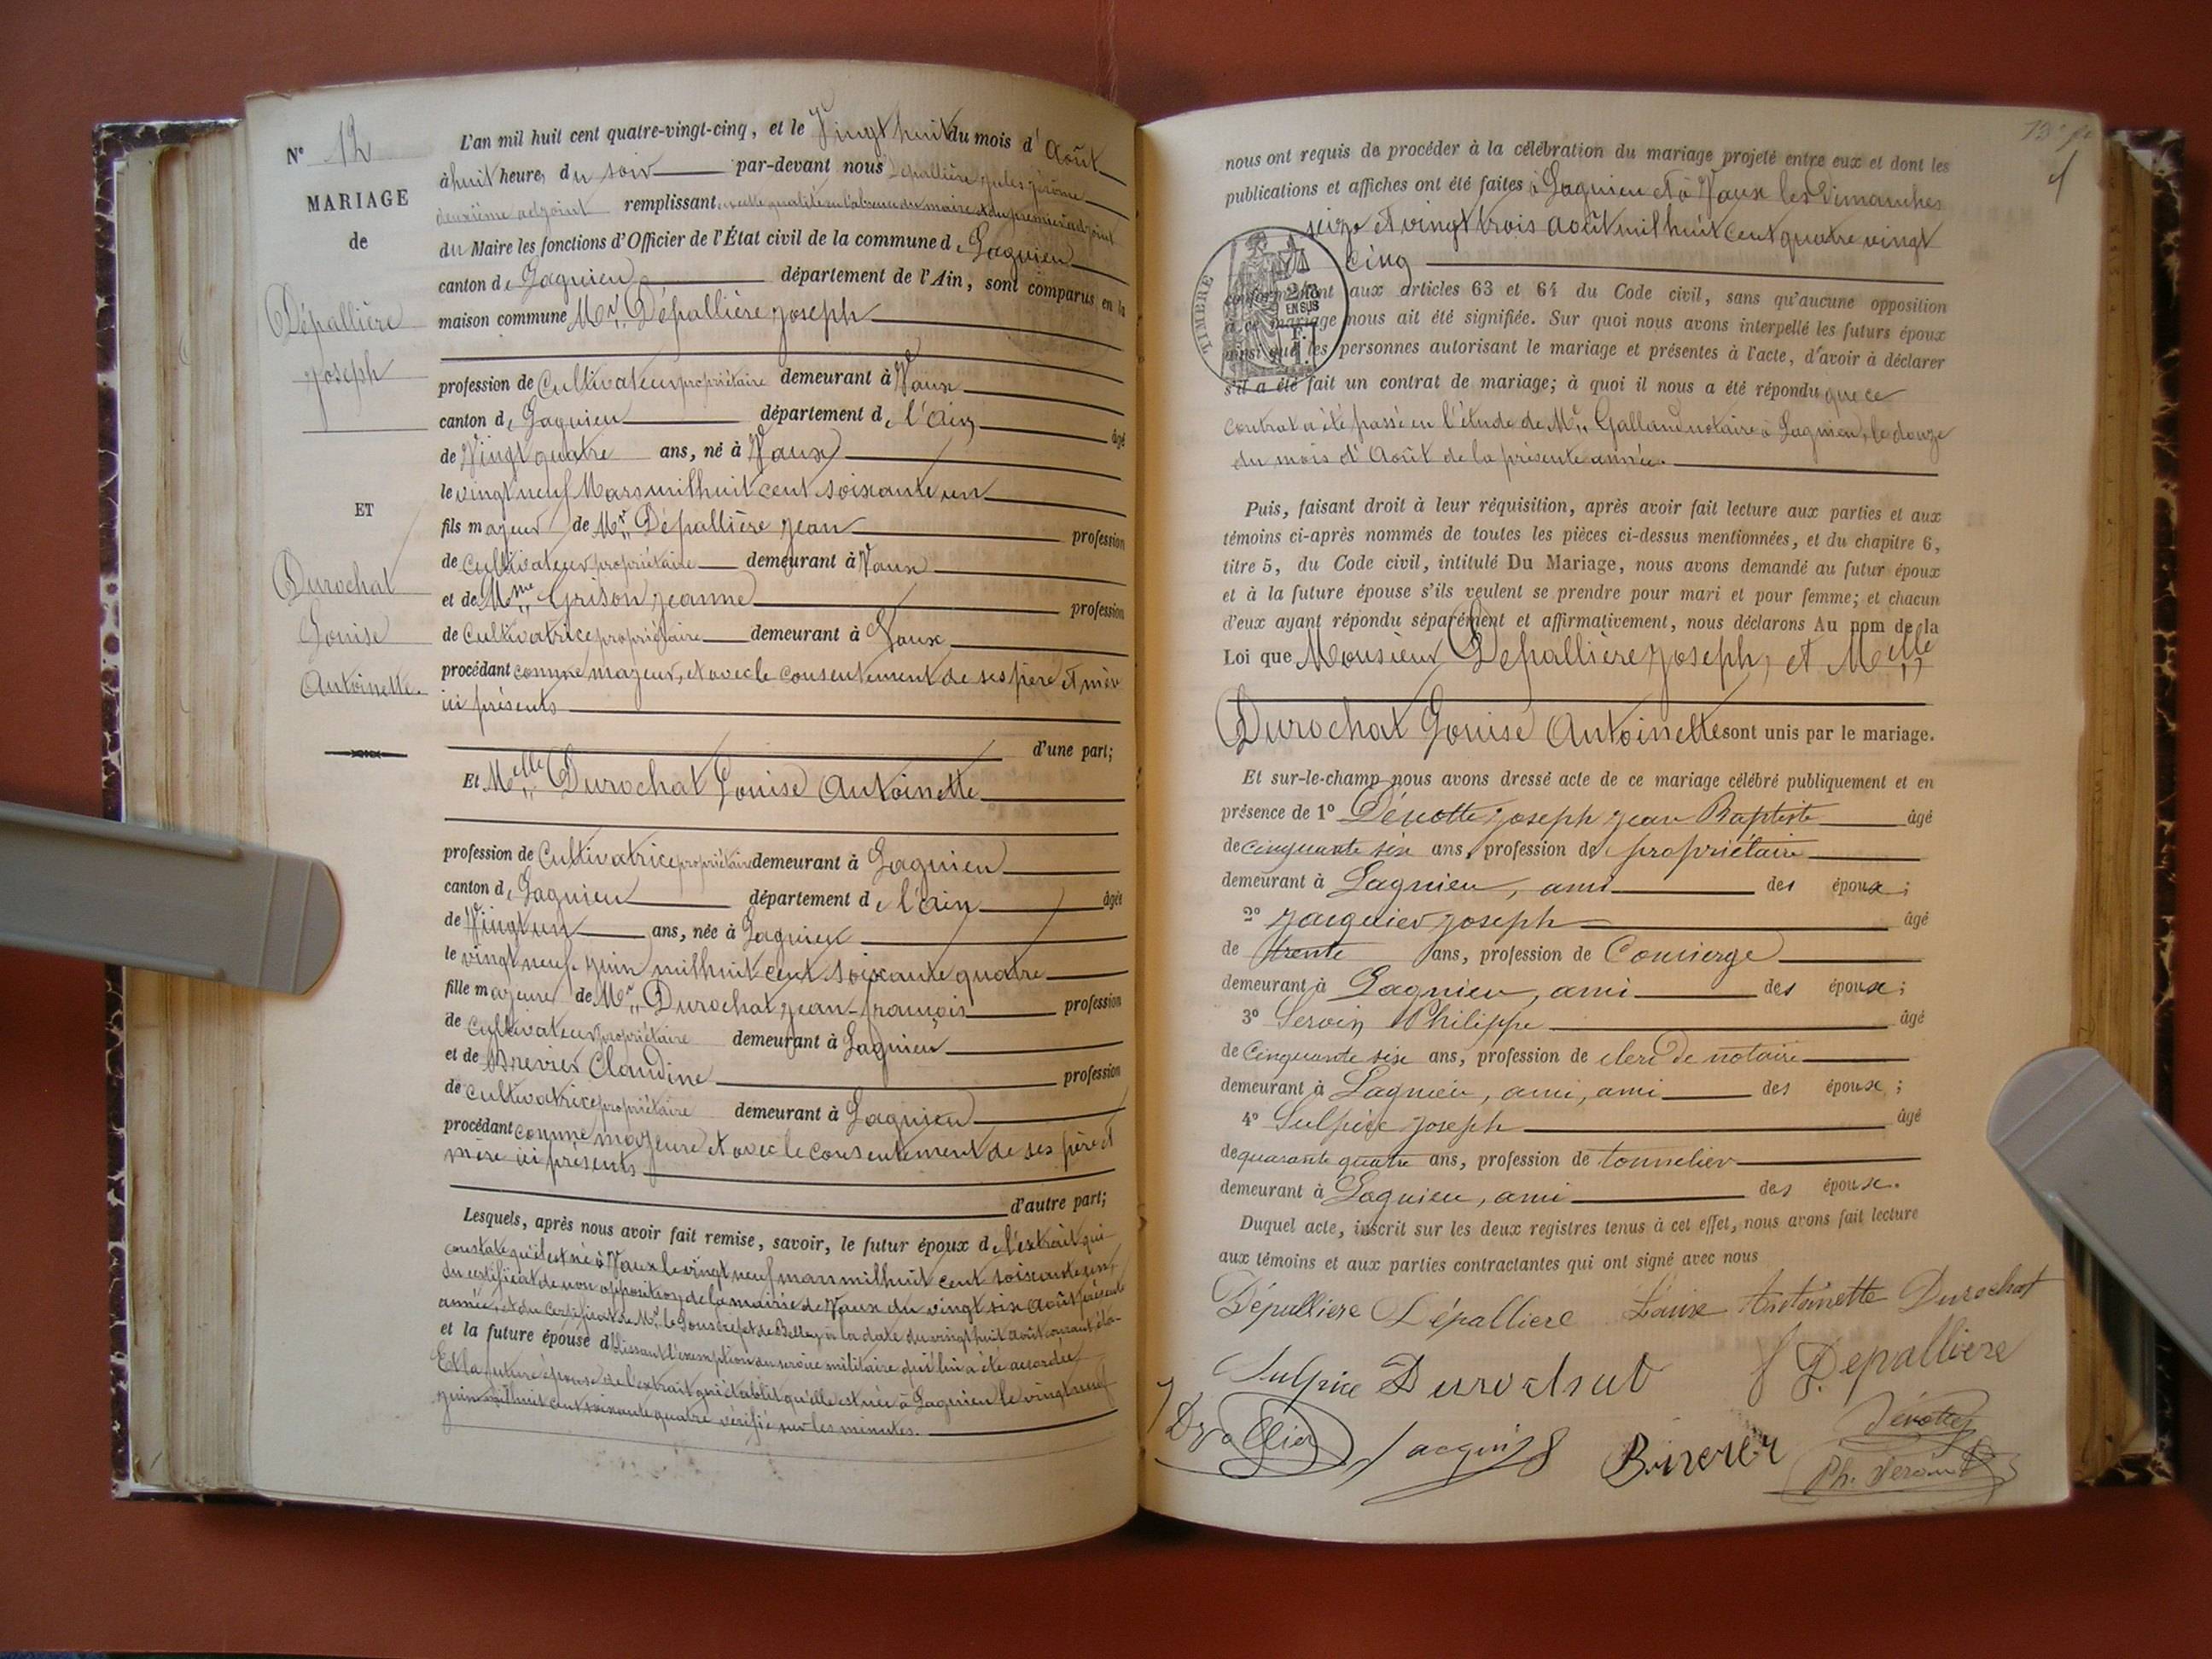 N° 12
MARIAGE
de
Dépallière
Joseph
ET
Durochat
Louise
Antoinette.
L'an mil huit cent quatre-vingt-cinq, et le Vingt huit du mois d'Août
à huit heures du soir par-devant nous Dépallière Jules Jérôme
deuxième adjoint remplissant, en cette qualité en l'absence du maire et du premier adjoint
du Maire les fonctions d'Officier de l'État civil de la commune de Lagnieu
canton de Lagnieu département de l'Ain, sont comparus en la
maison commune Mr Dépallière Joseph
profession de Cultivateur propriétaire demeurant à Vaux
canton de Lagnieu département de l'Ain âgé
de Vingt quatre ans, né à Vaux
le vingt neuf Mars mil huit cent soixante un
fils majeur de Mr Dépallière Jean profession
de Cultivateur propriétaire demeurant à Vaux
et de Mme Grison Jeanne profession
de Cultivatrice propriétaire demeurant à Vaux
procédant comme majeur, et avec le consentement de ses père et mère
ici présents
d'une part;
Et Melle Durochat Louise Antoinette
profession de Cultivatrice propriétaire demeurant à Lagnieu
canton de Lagnieu département de l'Ain âgée
de Vingt un ans, née à Lagnieu
le vingt neuf juin mil huit cent soixante quatre
fille majeure de Mr Durochat Jean-françois profession
de Cultivateur propriétaire demeurant à Lagnieu
et de Claudine profession
de Cultivatrice propriétaire demeurant à Lagnieu
procédant comme majeure et avec le consentement de ses père et
mère ici présents
d'autre part;
Lesquels, après nous avoir fait remise, savoir, le futur époux de l'extrait qui
constate qu'il est né à Vaux le vingt neuf mars mil huit cent soixante un,
du certificat de non opposition de la mairie de Vaux du vingt six Août présente
année, et du certificat de Mr le Sous Préfet de Belley à la date du vingt huit août courant éta-
et la future épouse d blissant l'exemption du service militaire qui lui a été accordée
Et la future épouse de l'extrait qui établit qu'elle est née à Lagnieu le vingt neuf
juin mil huit cent soixante quatre vérifié sur les minutes.
nous ont requis de procéder à la célébration du mariage projeté entre eux et dont les
publications et affiches ont été faites à Lagnieu et à Vaux les Dimanches
seize et vingt trois août mil huit cent quatre vingt
cinq
TIMBRE
2/10 EN SUS
conformément aux articles 63 et 64 du Code civil, sans qu'aucune opposition
à ce mariage nous ait été signifiée. Sur quoi nous avons interpellé les futurs époux
ainsi que les personnes autorisant le mariage et présentes à l'acte, d'avoir à déclarer
s'il a été fait un contrat de mariage; à quoi il nous a été répondu que ce
contrat a été passé en l'étude de Me Galland notaire à Lagnieu, le douze
du mois d'Août de la présente année.
Puis, faisant droit à leur réquisition, après avoir fait lecture aux parties et aux
témoins ci-après nommés de toutes les pièces ci-dessus mentionnées, et du chapitre 6,
titre 5, du Code civil, intitulé Du Mariage, nous avons demandé au futur époux
et à la future épouse s'ils veulent se prendre pour mari et pour femme; et chacun
d'eux ayant répondu séparément et affirmativement, nous déclarons Au nom de la
Loi que Monsieur Dépallière Joseph, et Melle
Durochat Louise Antoinette sont unis par le mariage.
Et sur-le-champ nous avons dressé acte de ce mariage célébré publiquement et en
présence de 1° Dénotte Joseph Jean Baptiste âgé
de cinquante six ans, profession de propriétaire
demeurant à Lagnieu, ami des époux;
2° Jacquier Joseph âgé
de trente ans, profession de Concierge
demeurant à Lagnieu, ami des époux;
3° Philippe âgé
de Cinquante six ans, profession de clerc de notaire
demeurant à Lagnieu, ami, ami des époux;
4° Sulpice Joseph âgé
de quarante quatre ans, profession de tonnelier
demeurant à Lagnieu, ami des époux.
Duquel acte, inscrit sur les deux registres tenus à cet effet, nous avons fait lecture
aux témoins et aux parties contractantes qui ont signé avec nous
Dépalliere Dépalliere Louise Antoinette Durochat
Sulpice Durochat J Depalliere
Jacquier Dénotte
Ph.